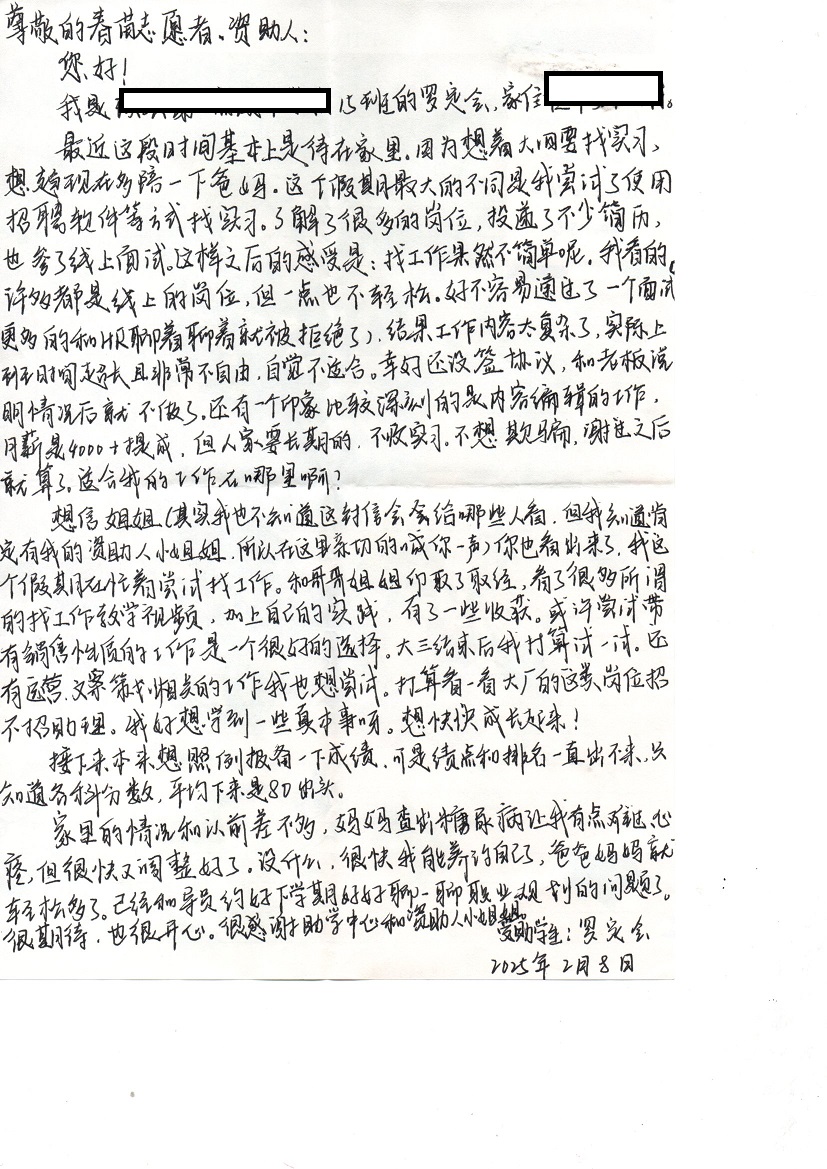 尊敬的春苗志愿者、资助人：
您好！
我是 15班的罗定会，家住 。
最近这段时间基本上是待在家里。因为想着大四要找实习，
想趁现在多陪一下爸妈。这个假期最大的不同是我尝试了使用
招聘软件等方式找实习。了解了很多的岗位，投递了不少简历，
也参了线上面试。这样之后的感受是：找工作果然不简单呢。我看的
许多都是线上的岗位，但一点也不轻松。好不容易通过了一个面试（
更多的和HR聊着聊着就被拒绝了），结果工作内容太复杂了，实际上
班时间超长且非常不自由，自觉不适合。幸好还没签协议，和老板说
明情况后就不做了。还有一个印象比较深刻的是内容编辑的工作，
月薪是4000+提成，但人家要长期的，不收实习。不想欺骗，谢过之后
就算了。适合我的工作在哪里啊？
想信姐姐（其实我也不知道这封信会会给哪些人看，但我知道肯
定有我的资助人小姐姐，所以在这里亲切的喊你一声）你也看出来了，我这
个假期在忙着尝试找工作。和哥哥姐姐们取了取经，看了很多所谓
的找工作教学视频，加上自己的实践，有了一些收获。或许尝试带
有销售性质的工作是一个很好的选择。大三结束后我打算试一试。还
有运营、文案策划相关的工作我也想尝试。打算看一看大厂的这类岗位招
不招助理。我好想学到一些真本事呀。想快快成长起来！
接下来本来想照例报备一下成绩，可是绩点和排名一直出不来，只
知道各科分数，平均下来是80出头。
家里的情况和以前差不多，妈妈查出糖尿病让我有点难过、心
疼，但很快又调整好了。没什么，很快我能养活自己了，爸爸妈妈就
轻松多了。已经和导员约好下学期好好聊一聊职业规划的问题了。
很期待，也很开心。很感谢助学中心和资助人小姐姐。
受助学生：罗定会
2025年2月8日